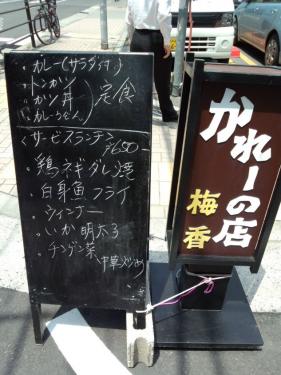 ・カレー(サラダ付)
・トンカツ
・カツ丼
・カレーうどん
定食
〈サービスランチ〉 ¥650-
・鶏ネギダレ焼
・白身魚フライ
・ウィンナー
・いか明太子
・チンゲン菜
かれーの店
梅香